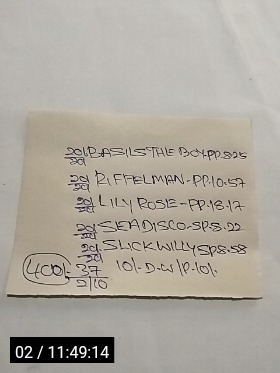 20/ BASILS THE BOY.PP.8.25
20/
20/ RIFFELMAN-PP.10.57
20/
20/ LILY ROSIE-FP.18.17
20/
20/ SEADISCO-SP.8.22
20/
20/ SLICKWILLY SP.8.58
20/
400/- 37 10/-D.W/P.10/-
2/10
02 / 11:49:14